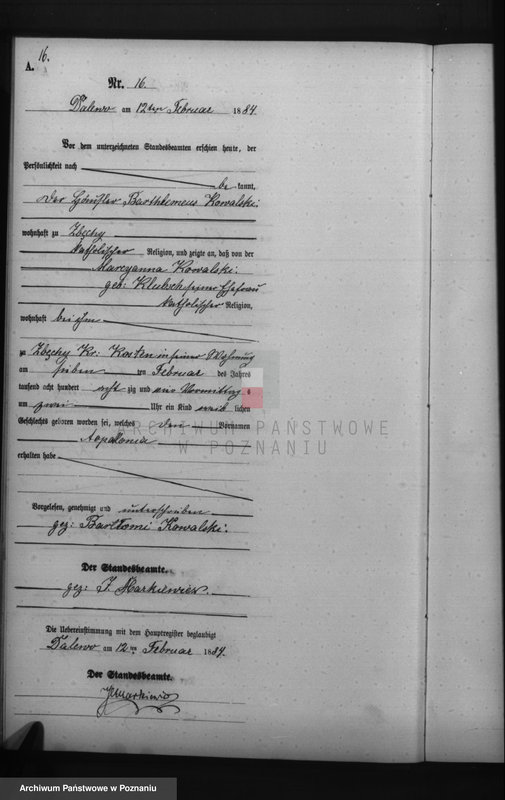 16.
A.
Nr. 16.
Dalewo am 12ten Februar 1884
Vor dem unterzeichneten Standesbeamten erschien heute, der
Persönlichkeit nach
be kannt,
der Häusler Barthlemeus Kowalski.
wohnhaft zu Zbechy
katholischer Religion, und zeigte an, daß von der
Maryanna Kowalski.
geb: Klubsch seiner Ehefrau
katholischer Religion,
wohnhaft bei ihm
zu Zbęchy Kr. Kosten in seiner Wohnung
am sieben ten Februar des Jahres
tausend acht hundert acht zig und vier Vormittag s
um zwei Uhr ein Kind weib lichen
Geschlechts geboren worden sei, welches den Vornamen
Appolonia
erhalten habe
Vorgelesen, genehmigt und unterschrieben
gez: Bartłomi Kowalski.
Der Standesbeamte.
gez: J. Markiewicz.
Die Uebereinstimmung mit dem Hauptregister beglaubigt
Dalewo am 12ten Februar 1884.
Der Standesbeamte.
JMarkiewicz
ARCHIWUM PAŃSTWOWE
W POZNANIU
Archiwum Państwowe w Poznaniu